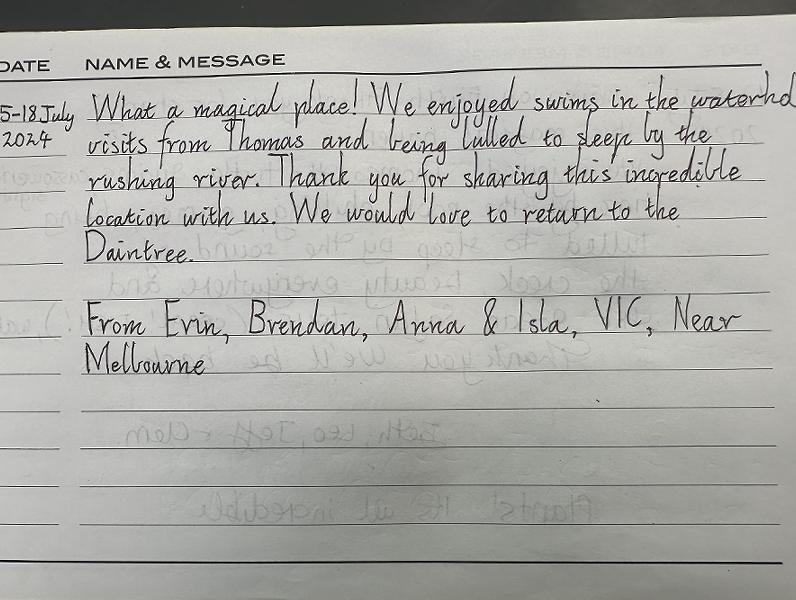 DATE NAME & MESSAGE
5-18 July What a magical place! We enjoyed swims in the
2024 visits from Thomas and being lulled to sleep by the
rushing river. Thank you for sharing this incredible
location with us. We would love to return to the
Daintree.
From Erin, Brendan, Anna & Isla, VIC, Near
Melbourne